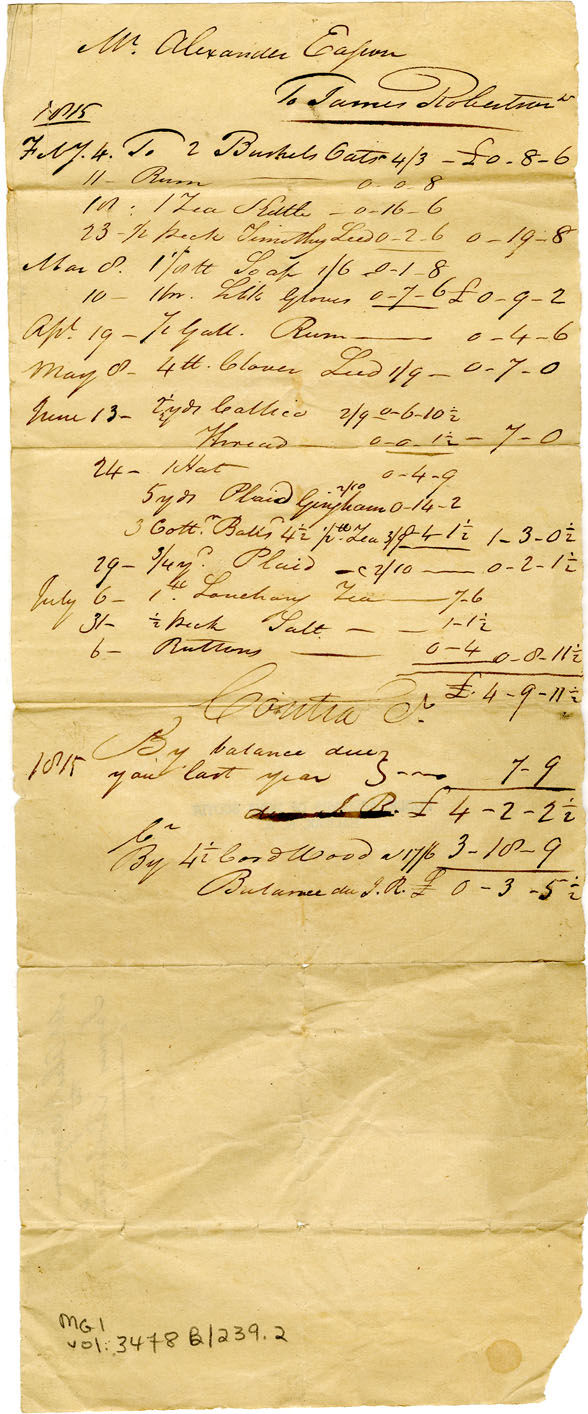 Mr. Alexander Eason
To James Robertson Dr
1815
Feby. 4. To 2 Bushels Oats 4/3 - £0-8-6
11 - Rum 0-0-8
18: 1 Tea Kettle - 0-16-6
23 - ½ Peck Timothy Seed 0-2-6 0-19-8
Mar 8. 1 1/8 lb Soap 1/6 0-1-8
10 - 1 pr. Silk Gloves 0-7-6 £0-9-2
Apl. 19 - ½ Gall. Rum - 0-4-6
May 8 - 4 lb. Clover Seed 1/9 - 0-7-0
June 13 - 2½ yds Callico 2/9 0-6-10½
Thread 0-0-1½ - 7-0
24 - 1 Hat 0-4-9
5 yds Plaid Gingham 2/10 0-14-2
3 Cottn. Balls 4½ ½ lb. Tea 3/9 4 1½ 1-3-0½
29 - 3/4 yd. Plaid - 2/10 - 0-2-1½
July 6 - 1 lb Souchong Tea 7-6
31 - ½ Peck Salt - - 1-1½
6 - Buttons 0-4 0-8-11½
£ 4-9-11½
Contra Cr.
1815 By balance due
you last year } 7-9
due J. R. £ 4-2-2½
Cr
By 4½ Cord Wood a 17/6 3-18-9
Balance due J.R. £ 0-3-5½
MG1
vol: 3478 B/239.2